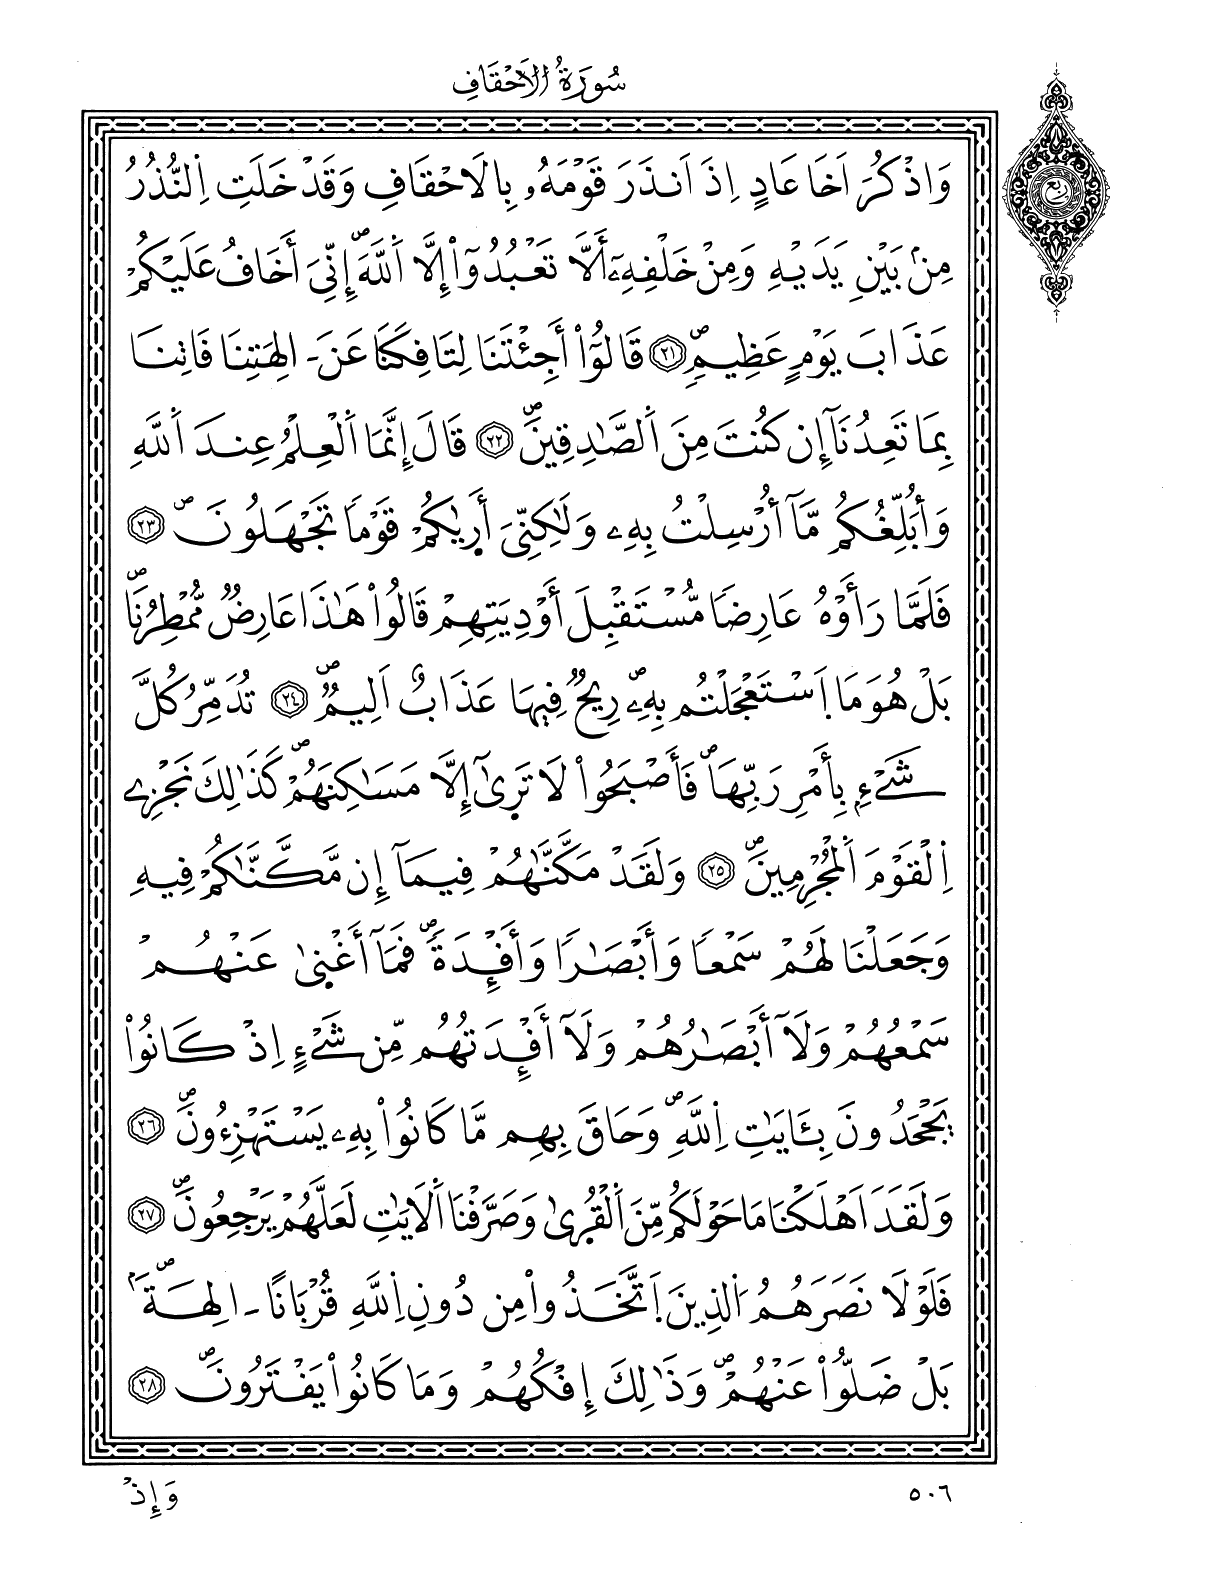 سُورَةُ الَاحْقَافِ
رُبع
وَاذْكُرَ اَخَا عَادٍ اِذَ اَنذَرَ قَوْمَهُۥ بِالَاحْقَافِ وَقَدْ خَلَتِ اِلنُّذُرُ
مِنۢ بَيْنِ يَدَيْهِ وَمِنْ خَلْفِهِۦٓ أَلَّا تَعْبُدُوٓاْ إِلَّا اَ۬للَّهَۖ إِنِّيَ أَخَافُ عَلَيْكُمْ
عَذَابَ يَوْمٍ عَظِيمٖۖ ٢١ قَالُوٓاْ أَجِئْتَنَا لِتَافِكَنَا عَنَ ـ الِهَتِنَا فَاتِنَا
بِمَا تَعِدُنَآ إِن كُنتَ مِنَ اَ۬لصَّٰدِقِينَۖ ٢٢ قَالَ إِنَّمَا اَ۬لْعِلْمُ عِندَ اَ۬للَّهِ
وَأُبَلِّغُكُم مَّآ أُرْسِلْتُ بِهِۦ وَلَٰكِنِّيَ أَر۪يٰكُمْ قَوْماٗ تَجْهَلُونَۖ ٢٣
فَلَمَّا رَأَوْهُ عَارِضاٗ مُّسْتَقْبِلَ أَوْدِيَتِهِمْ قَالُواْ هَٰذَا عَارِضٞ مُّمْطِرُنَاۖ
بَلْ هُوَ مَا اَ۪سْتَعْجَلْتُم بِهِۦۖ رِيحٞ فِيهَا عَذَابٌ اَلِيمٞۖ ٢٤ تُدَمِّرُ كُلَّ
شَےْءِۢ بِأَمْرِ رَبِّهَاۖ فَأَصْبَحُواْ لَا تَر۪يٰٓ إِلَّا مَسَٰكِنَهُمْۖ كَذَٰلِكَ نَجْزِے
اِ۬لْقَوْمَ اَ۬لْمُجْرِمِينَۖ ٢٥ وَلَقَدْ مَكَّنَّٰهُمْ فِيمَآ إِن مَّكَّنَّٰكُمْ فِيهِ
وَجَعَلْنَا لَهُمْ سَمْعاٗ وَأَبْصَٰراٗ وَأَفْـِٕدَةٗۖ فَمَآ أَغْن۪يٰ عَنْهُمْ
سَمْعُهُمْ وَلَآ أَبْصَٰرُهُمْ وَلَآ أَفْـِٕدَتُهُم مِّن شَےْءٍ اِذْ كَانُواْ
يَجْحَدُونَ بِـَٔايَٰتِ اِ۬للَّهِۖ وَحَاقَ بِهِم مَّا كَانُواْ بِهِۦ يَسْتَهْزِءُونَۖ ٢٦
وَلَقَدَ اَهْلَكْنَا مَا حَوْلَكُم مِّنَ اَ۬لْقُر۪يٰ وَصَرَّفْنَا اَ۬لَايَٰتِ لَعَلَّهُمْ يَرْجِعُونَۖ ٢٧
فَلَوْلَا نَصَرَهُمُ اُ۬لذِينَ اَ۪تَّخَذُواْ مِن دُونِ اِ۬للَّهِ قُرْبَاناً ـ الِهَةَۢۖ
بَلْ ضَلُّواْ عَنْهُمْۖ وَذَٰلِكَ إِفْكُهُمْ وَمَا كَانُواْ يَفْتَرُونَۖ ٢٨
٥٠٦ وَإِذْ